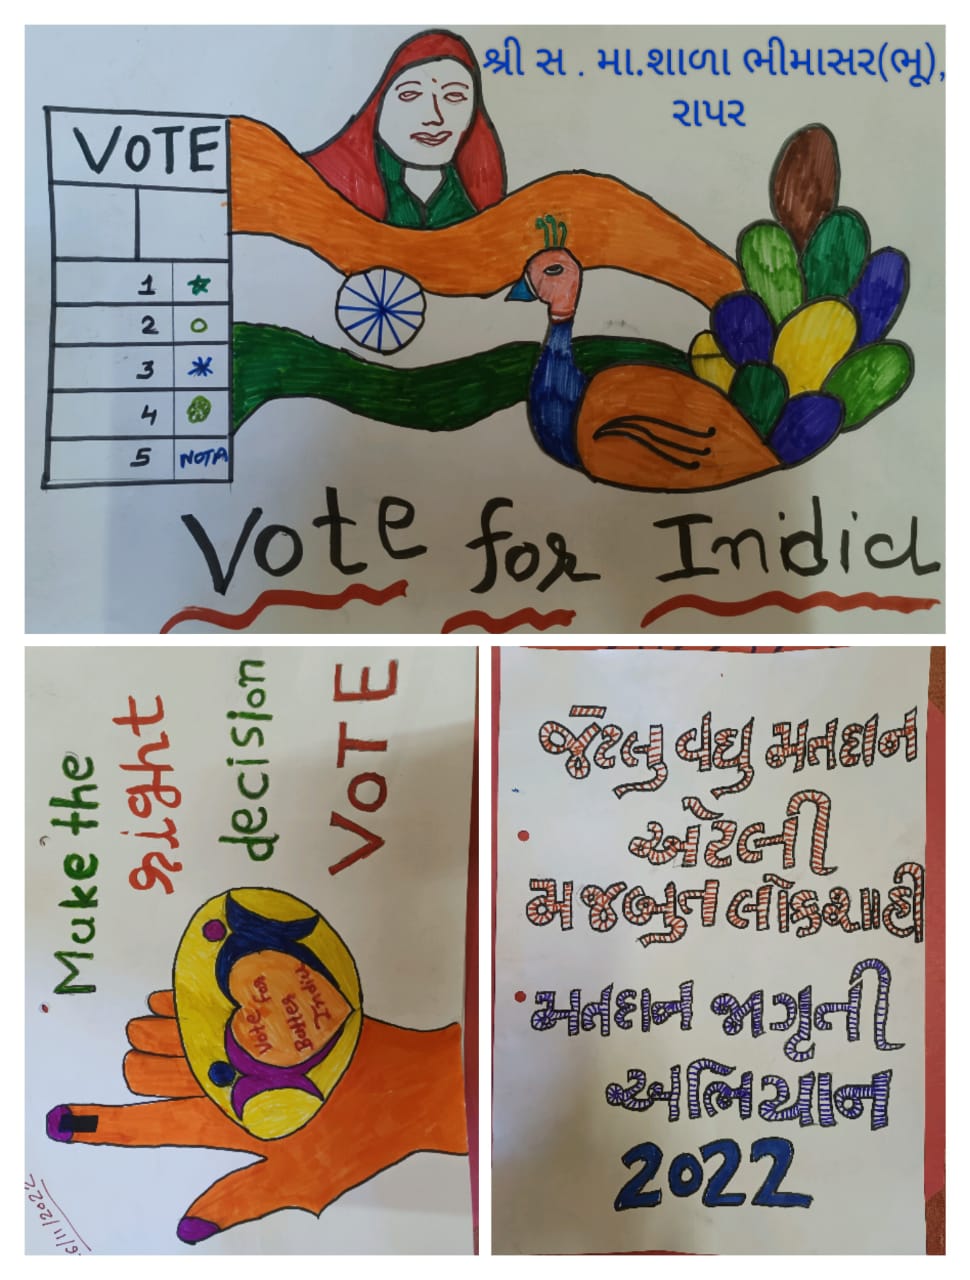 શ્રી સ . મા.શાળા ભીમાસર(ભૂ),
રાપર
VOTE
1
2
3
4
5 NOTA
Vote for India
Make the
right
decision
VOTE
Vote for
Better
India
6/11/2022
જેટલુ વધુ મતદાન
એટલી
મજબુત લોકશાહી
મતદાન જાગૃતી
અભિયાન
2022